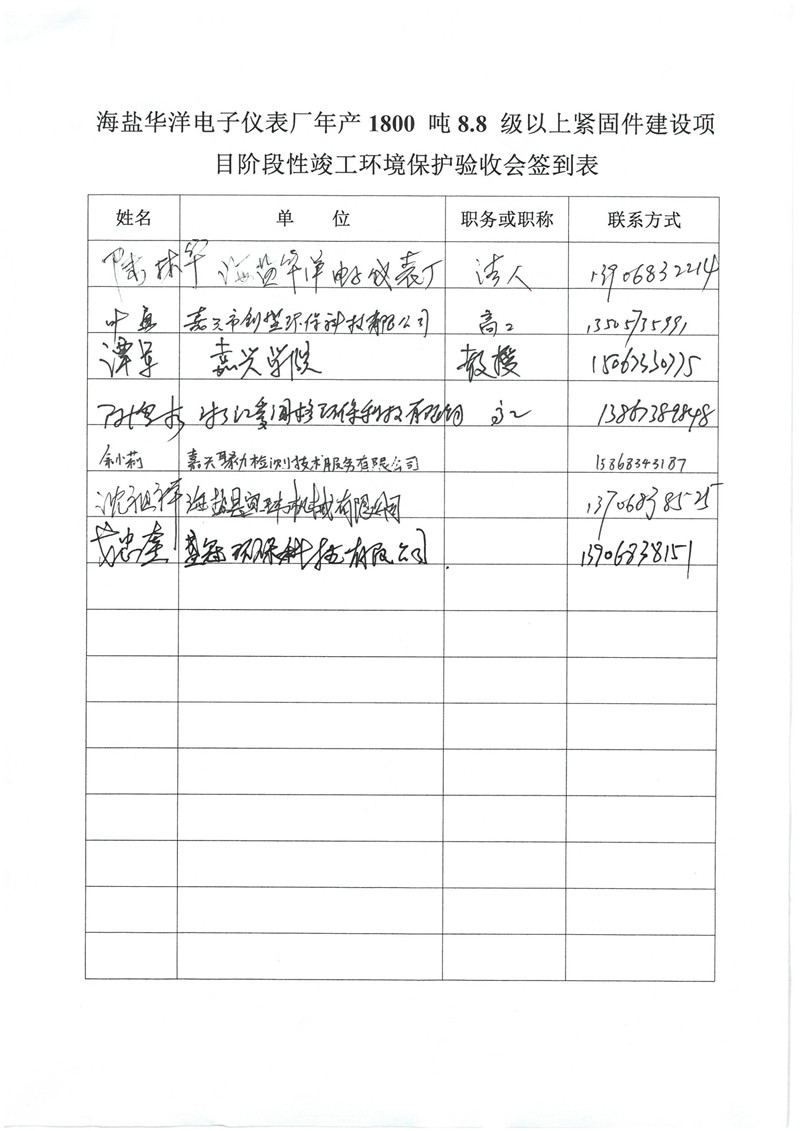 海盐华洋电子仪表厂年产 1800 吨 8.8 级以上紧固件建设项
目阶段性竣工环境保护验收会签到表
姓名 单 位 职务或职称 联系方式
林华 海盐华洋电子仪表厂 法人 13906832214
叶 嘉兴市创 环保科技有限公司 高工 13505735991
谭军 嘉兴学院 教授 15067330775
环保科技有限公司 高工 13867389848
余小莉 嘉兴聚力检测技术服务有限公司 15868343187
沈祖祥 海盐县 机械有限公司 13706838525
忠奎 蓝冠环保科技有限公司 13906838151